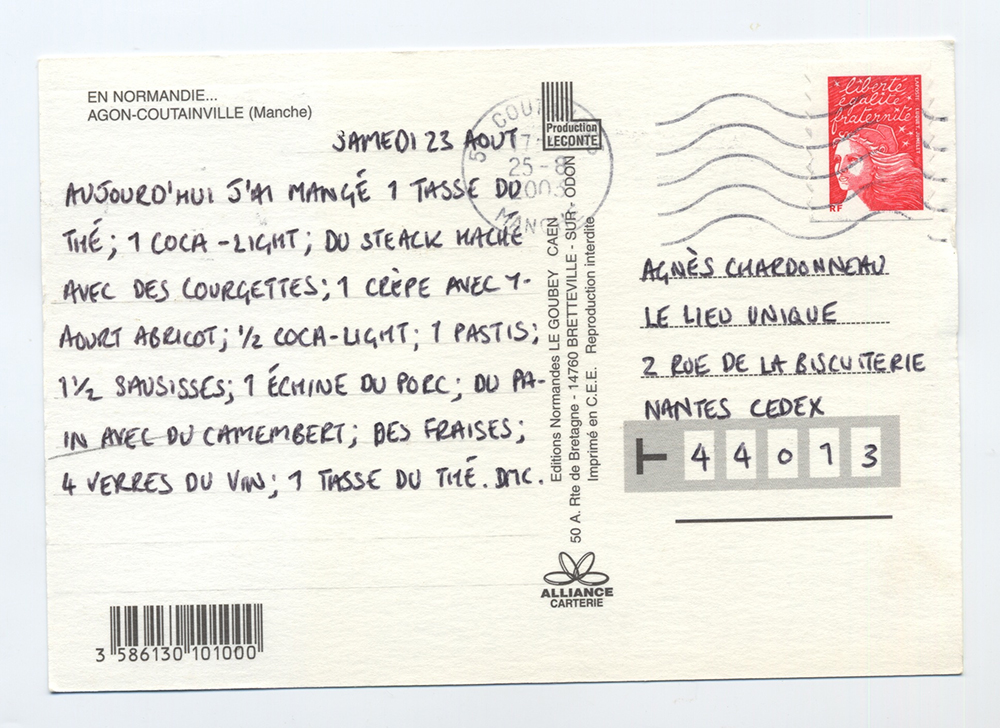 EN NORMANDIE...
AGON-COUTAINVILLE (Manche)
SAMEDI 23 AOUT
AUJOURD'HUI J'AI MANGÉ 1 TASSE DU
THÉ; 1 COCA-LIGHT; DU STEACK HACHÉ
AVEC DES COURGETTES; 1 CRÈPE AVEC Y-
AOURT ABRICOT; 1/2 COCA-LIGHT; 1 PASTIS;
1 1/2 SAUSISSES; 1 ÉCHINE DU PORC; DU PA-
IN AVEC DU CAMEMBERT; DES FRAISES;
4 VERRES DU VIN; 1 TASSE DU THÉ. DMC.
3 586130 101000
Production
LECONTE
Editions Normandes LE GOUBEY CAEN
50 A. Rte de Bretagne - 14760 BRETTEVILLE - SUR - ODON
Imprimé en C.E.E. Reproduction interdite
ALLIANCE
CARTERIE
25-8
2003
liberté
égalité
fraternité
RF
AGNÈS CHARDONNEAU
LE LIEU UNIQUE
2 RUE DE LA BISCUITERIE
NANTES CEDEX
44013